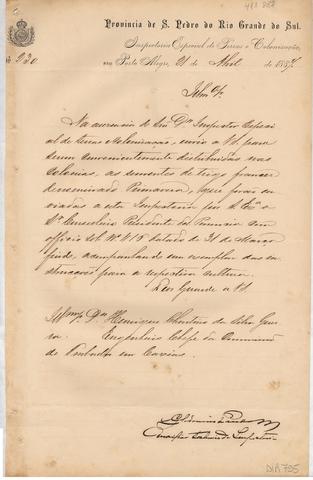 Provincia de S. Pedro do Rio Grande do Sul.
Inspectoria Especial de Terras e Colonisação,
Nº 230 em Porto Alegre, 21 de Abril de 1887
Illm. Sr.
Na ausencia do Snr. Dr. Inspector Especial
de terras e colonisação, envio a VS. para
serem convenientemente distribuidas nas
colonias, as sementes de trigo francez
denominado que forão en
viadas a esta Inspectoria por S. Exª o
Sr. Conselheiro Presidente da Provincia com
officio sob Nº 418 datado de 31 de Março
findo, acompanhando um exemplar das in
strucções para a respectiva cultura.
Deos Guarde a VS.
Illmo. Sr. Dr. Henrique Christino da Silva Gui
Engenheiro Chefe da Commissão
de Medição em Caxias.
DIA 705